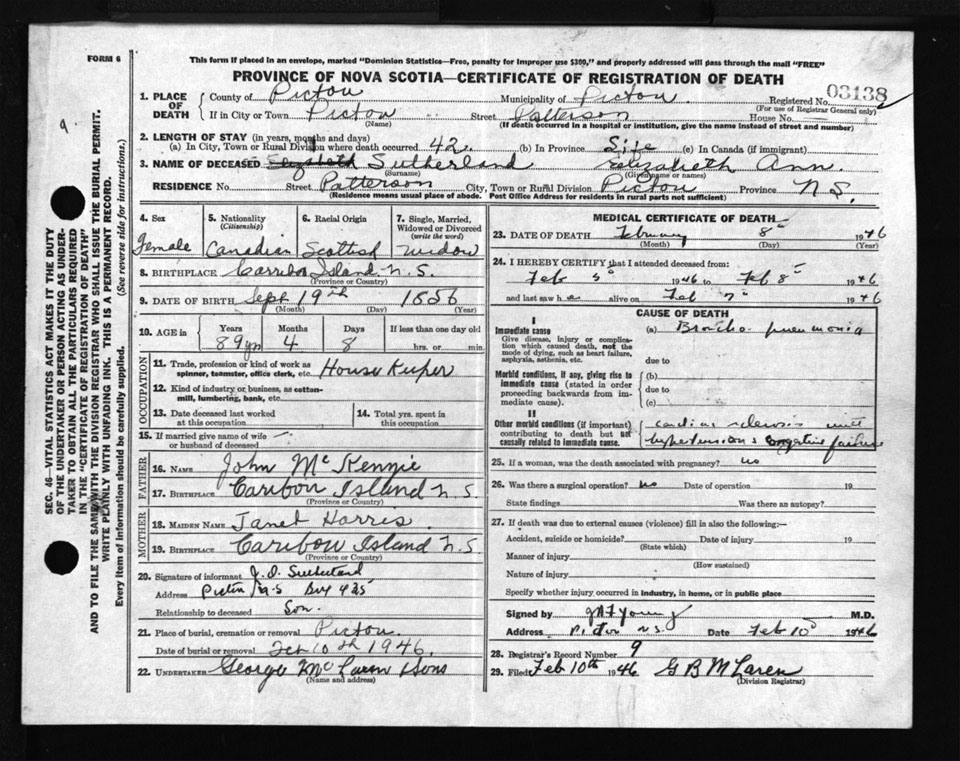 FORM 6
This form if placed in an envelope, marked "Dominion Statistics—Free, penalty for improper use $300," and properly addressed will pass through the mail "FREE"
PROVINCE OF NOVA SCOTIA—CERTIFICATE OF REGISTRATION OF DEATH
1. PLACE OF DEATH County of Pictou Municipality of Pictou. Registered No. 03138
(For use of Registrar General only)
If in City or Town Pictou Street Patterson House No.
(Name) (If death occurred in a hospital or institution, give the name instead of street and number)
2. LENGTH OF STAY (in years, months and days)
(a) In City, Town or Rural Division where death occurred 42. (b) In Province Life (c) In Canada (if immigrant)
3. NAME OF DECEASED Sutherland Elizabeth Ann.
(Surname) (Given name or names)
RESIDENCE No. Street Patterson City, Town or Rural Division Pictou Province N S.
(Residence means usual place of abode. Post Office Address for residents in rural parts not sufficient)
4. Sex 5. Nationality 6. Racial Origin 7. Single, Married, Widowed or Divorced
(Citizenship) (write the word)
Female Canadian Scottish Widow
8. BIRTHPLACE Carribou Island N. S.
(Province or Country)
9. DATE OF BIRTH Sept 19th 1856
(Month) (Day) (Year)
10. AGE in Years Months Days If less than one day old
89 yrs 4 8 hrs. or min.
OCCUPATION
11. Trade, profession or kind of work as spinner, teamster, office clerk, etc. House Keeper
12. Kind of industry or business, as cotton-mill, lumbering, bank, etc.
13. Date deceased last worked at this occupation 14. Total yrs. spent in this occupation
15. If married give name of wife or husband of deceased
FATHER
16. NAME John Mc Kenzie
17. BIRTHPLACE Caribou Island N S.
(Province or Country)
MOTHER
18. MAIDEN NAME Janet Harris
19. BIRTHPLACE Caribow Island N. S
(Province or Country)
20. Signature of informant J. D. Sutherland
Address Pictou N.S Box 425
Relationship to deceased Son.
21. Place of burial, cremation or removal Pictou.
Date of burial or removal Feb 10th 1946.
22. UNDERTAKER George McLaren & Sons
(Name and address)
MEDICAL CERTIFICATE OF DEATH
23. DATE OF DEATH February 8 1946
(Month) (Day) (Year)
24. I HEREBY CERTIFY that I attended deceased from:
Feb 5 1946 to Feb 8 1946
and last saw h e alive on Feb 7 1946
CAUSE OF DEATH
I
Immediate cause
Give disease, injury or complication which caused death, not the mode of dying, such as heart failure, asphyxia, asthenia, etc.
(a) Broncho-pneumonia
due to
Morbid conditions, if any, giving rise to immediate cause (stated in order proceeding backwards from immediate cause).
(b)
due to
(c)
II
Other morbid conditions (if important) contributing to death but not causally related to immediate cause.
hypertension & congestive failure
25. If a woman, was the death associated with pregnancy? no
26. Was there a surgical operation? no Date of operation 19
State findings Was there an autopsy?
27. If death was due to external causes (violence) fill in also the following:—
Accident, suicide or homicide? Date of injury 19
(State which)
Manner of injury
(How sustained)
Nature of injury
Specify whether injury occurred in industry, in home, or in public place
Signed by Young M.D.
Address Pictou N.S. Date Feb 10 1946
28. Registrar's Record Number 9
29. Filed Feb 10th 1946 G B McLaren
(Division Registrar)
SEC. 46—VITAL STATISTICS ACT MAKES IT THE DUTY
OF THE UNDERTAKER OR PERSON ACTING AS UNDER-
TAKER TO OBTAIN ALL THE PARTICULARS REQUIRED
IN THE "CERTIFICATE OF REGISTRATION OF DEATH"
AND TO FILE THE SAME WITH THE DIVISION REGISTRAR WHO SHALL ISSUE THE BURIAL PERMIT.
WRITE PLAINLY WITH UNFADING INK. THIS IS A PERMANENT RECORD.
Every item of information should be carefully supplied. (See reverse side for instructions.)
9